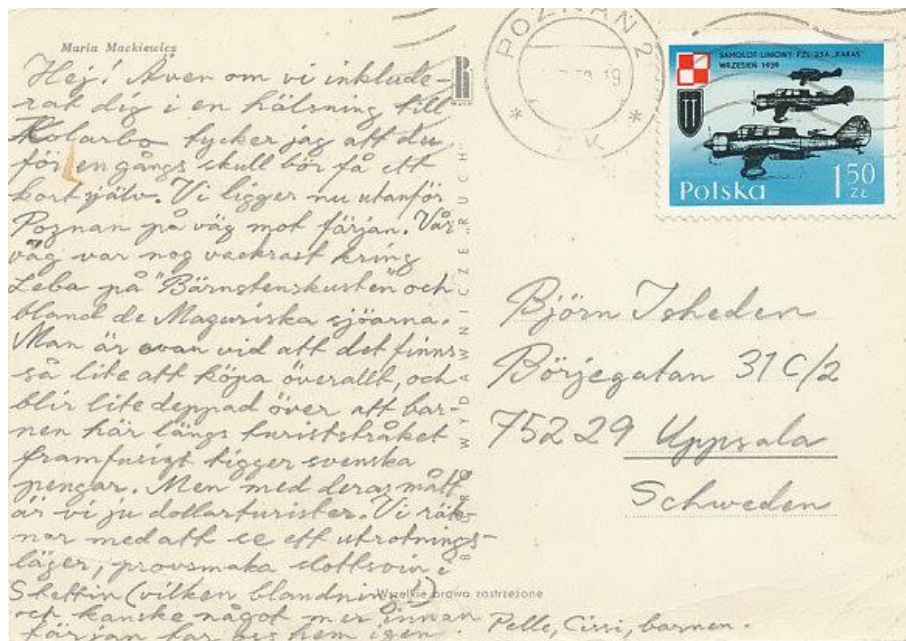 Maria Mackiewicz
Hej! Även om vi inklude-
rat dig i en hälsning till
Kolarbo tycker jag att du
för en gångs skull bör få ett
kort själv. Vi ligger nu utanför
Poznan på väg mot färjan. Vår
väg var nog vackrast kring
Leba på "Bärnstenskusten" och
bland de Masuriska sjöarna.
Man är ovan vid att det finns
så lite att köpa överallt, och
blir lite deppad över att bar-
nen här längs turiststråket
framfusigt tigger svenska
pengar. Men med deras mått
är vi ju dollarturister. Vi räk-
nar med att se ett utrotnings-
läger, provsmaka slottsvin i
Stettin (vilken blandning!)
och kanske något mer innan
färjan tar oss hem igen.
Pelle, Cissi, barnen.
WYDAWNICZE "RUCH"
Wszelkie prawa zastrzeżone
POZNAŃ 2
SAMOLOT LINIOWY PZL-23A "KARAŚ"
WRZESIEŃ 1939
Polska
1 50 ZŁ
Björn Isheden
Börjegatan 31 C/2
75229 Uppsala
Schweden